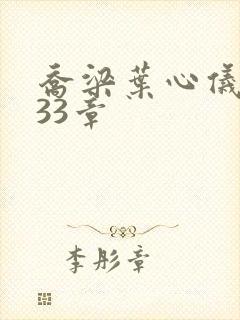 喬梁葉心儀
33章
李彤章